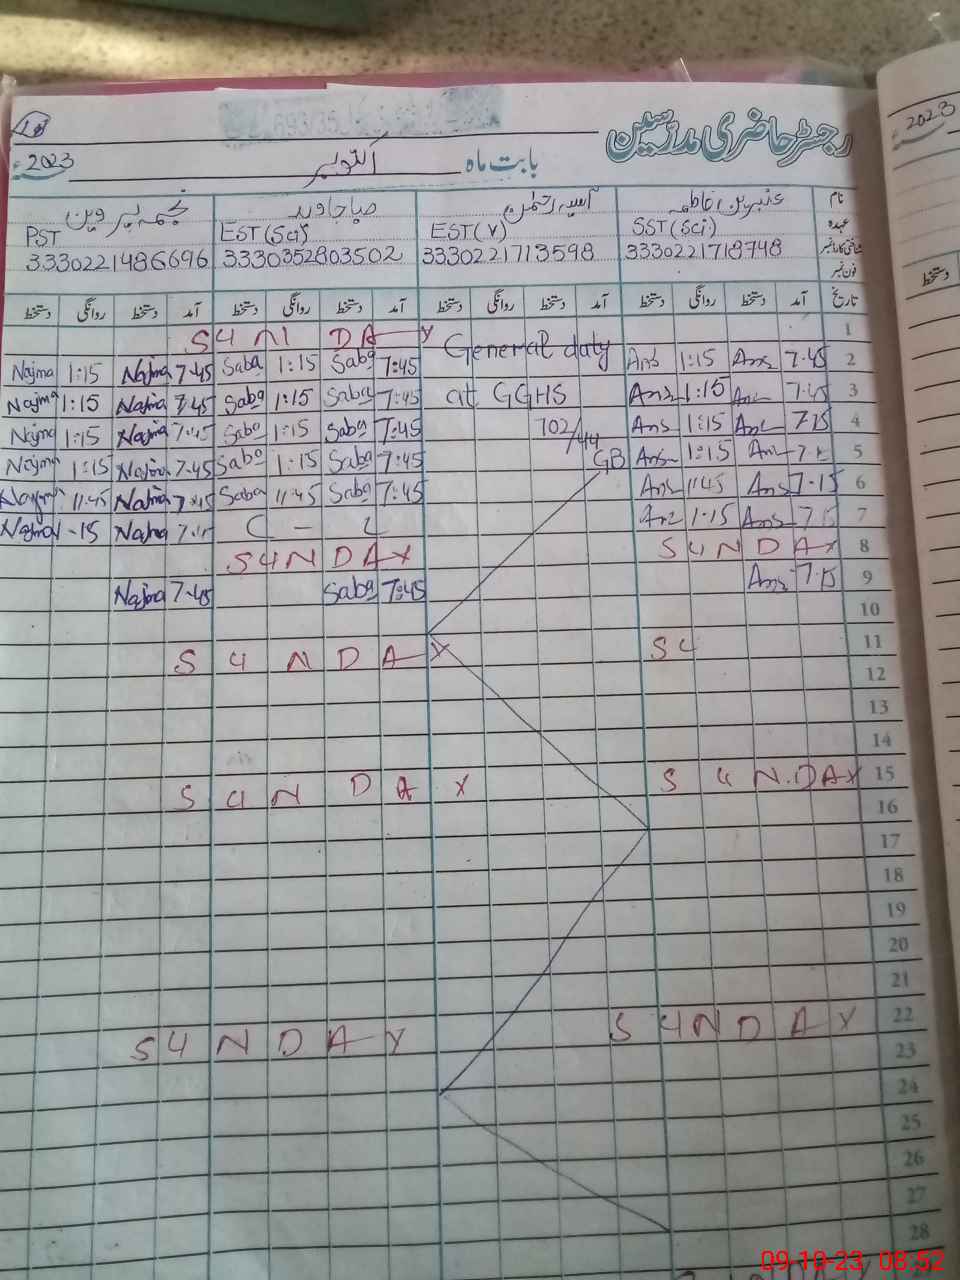 رجسٹر حاضری مدرسین
بابت ماہ اکتوبر 2023
نام عنبرین فاطمہ آسیہ رحمٰن صبا جاوید نجمہ پروین
عہدہ SST (Sci) EST (V) EST (Sci) PST
شناختی کارڈ نمبر 3330221718748 3330221713598 3330352803502 3330221486696
فون نمبر
تاریخ آمد دستخط روانگی دستخط آمد دستخط روانگی دستخط آمد دستخط روانگی دستخط آمد دستخط روانگی دستخط
SUNDAY 1
Najma 1:15 Najma 7:45 Saba 1:15 Saba 7:45 General duty 1:15 7:45 2
Najma 1:15 Najma 7:45 Saba 1:15 Saba 7:45 at GGHS 1:15 7:45 3
Najma 1:15 Najma 7:45 Saba 1:15 Saba 7:45 702/44 1:15 7:15 4
Najma 1:15 Najma 7:45 Saba 1:15 Saba 7:45 GB 1:15 5
Najma 11:45 Najma 7:45 Saba 11:45 Saba 7:45 11:45 7:15 6
Najma 1-15 Najma C - L 1:15 7:15 7
SUNDAY SUNDAY 8
Najma 7:45 Saba 7:45 7:15 9
10
SUNDAY SU 11
12
13
14
SUNDAY SUNDAY 15
16
17
18
19
20
21
SUNDAY SUNDAY 22
23
24
25
26
27
28
2023
دستخط
09-10-23 08:52